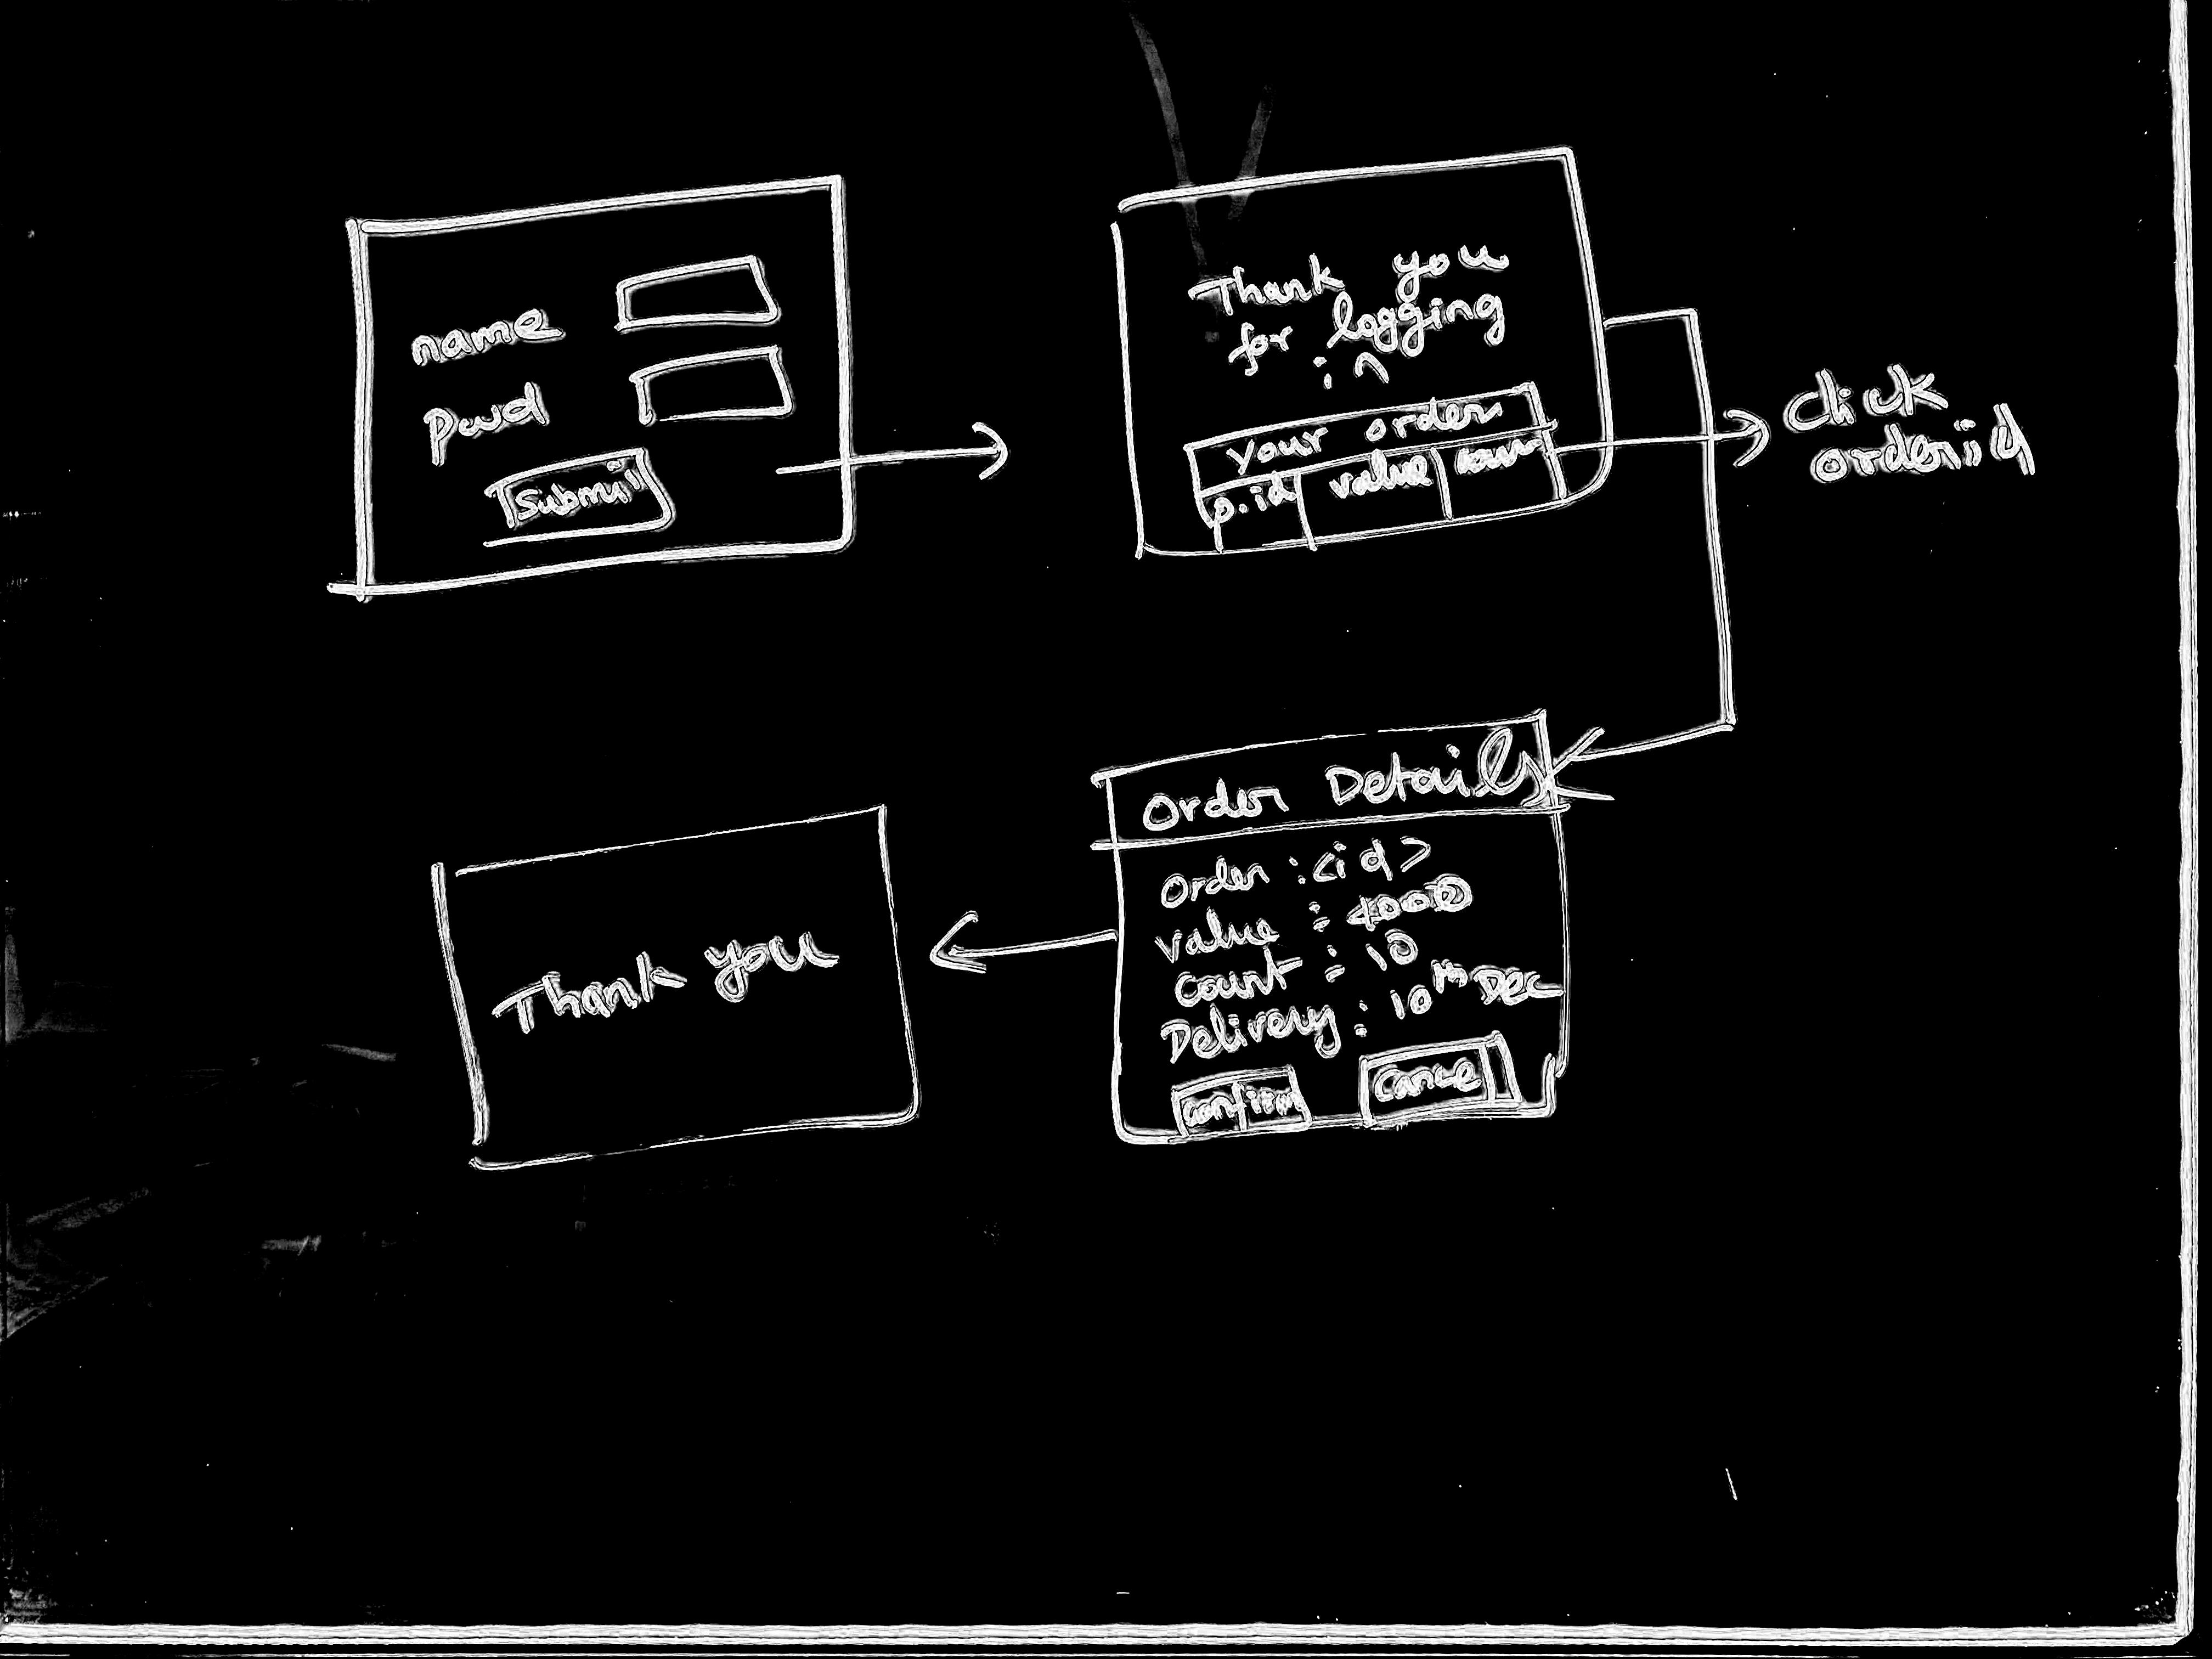 name
Pwd
Submit
Thank you
for logging
in
your order
o.id value
Click
orderid
Order Details
Order : <id>
value : 4000
Count : 10
Delivery : 10th Dec
confirm Cancel
Thank you